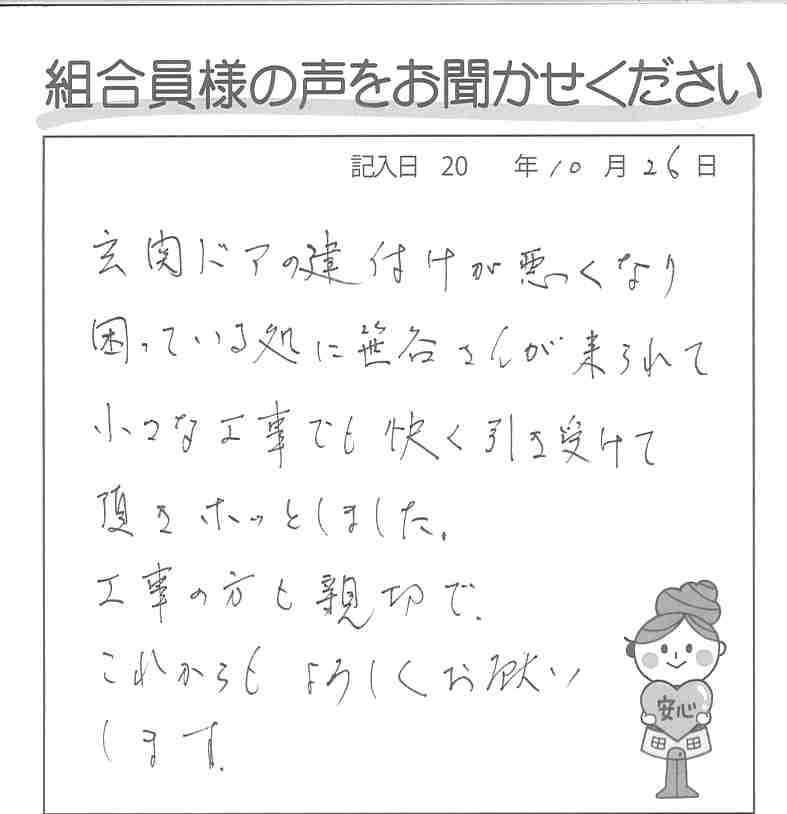 組合員様の声をお聞かせください
記入日 20 年 10 月 26 日
玄関ドアの建付けが悪くなり
困っている処に笹谷さんが来られて
小さな工事でも快く引き受けて
頂きホッとしました。
工事の方も親切で、
これからもよろしくお願い
します。
安心